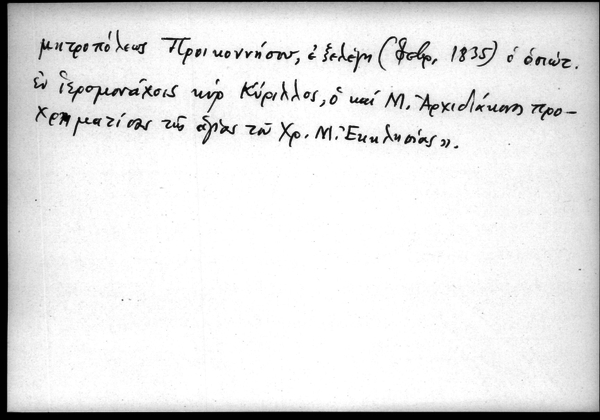 μητροπόλεως Προικοννήσου, ἐξελέγη (Φεβρ. 1835) ὁ ὁσιώτ.
ἐν ἱερομονάχοις κύρ Κύριλλος, ὁ καί Μ. Ἀρχιδιάκονος προ-
χρηματίσας τῆς ἁγίας τοῦ Χρ. Μ. Ἐκκλησίας».